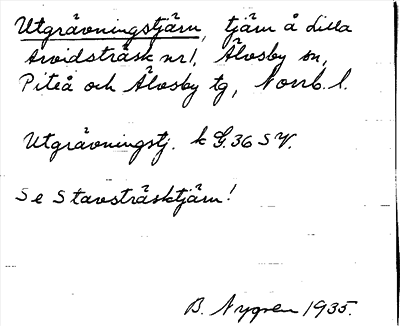 Utgrävningstjärn, tjärn å Lilla
Arvidsträsk nr 1, Älvsby sn,
Piteå och Älvsby tg, Norrb. l.
Utgrävningstj. k G. 36 SV.
Se Stavsträsktjärn!
B. Nygren 1935.